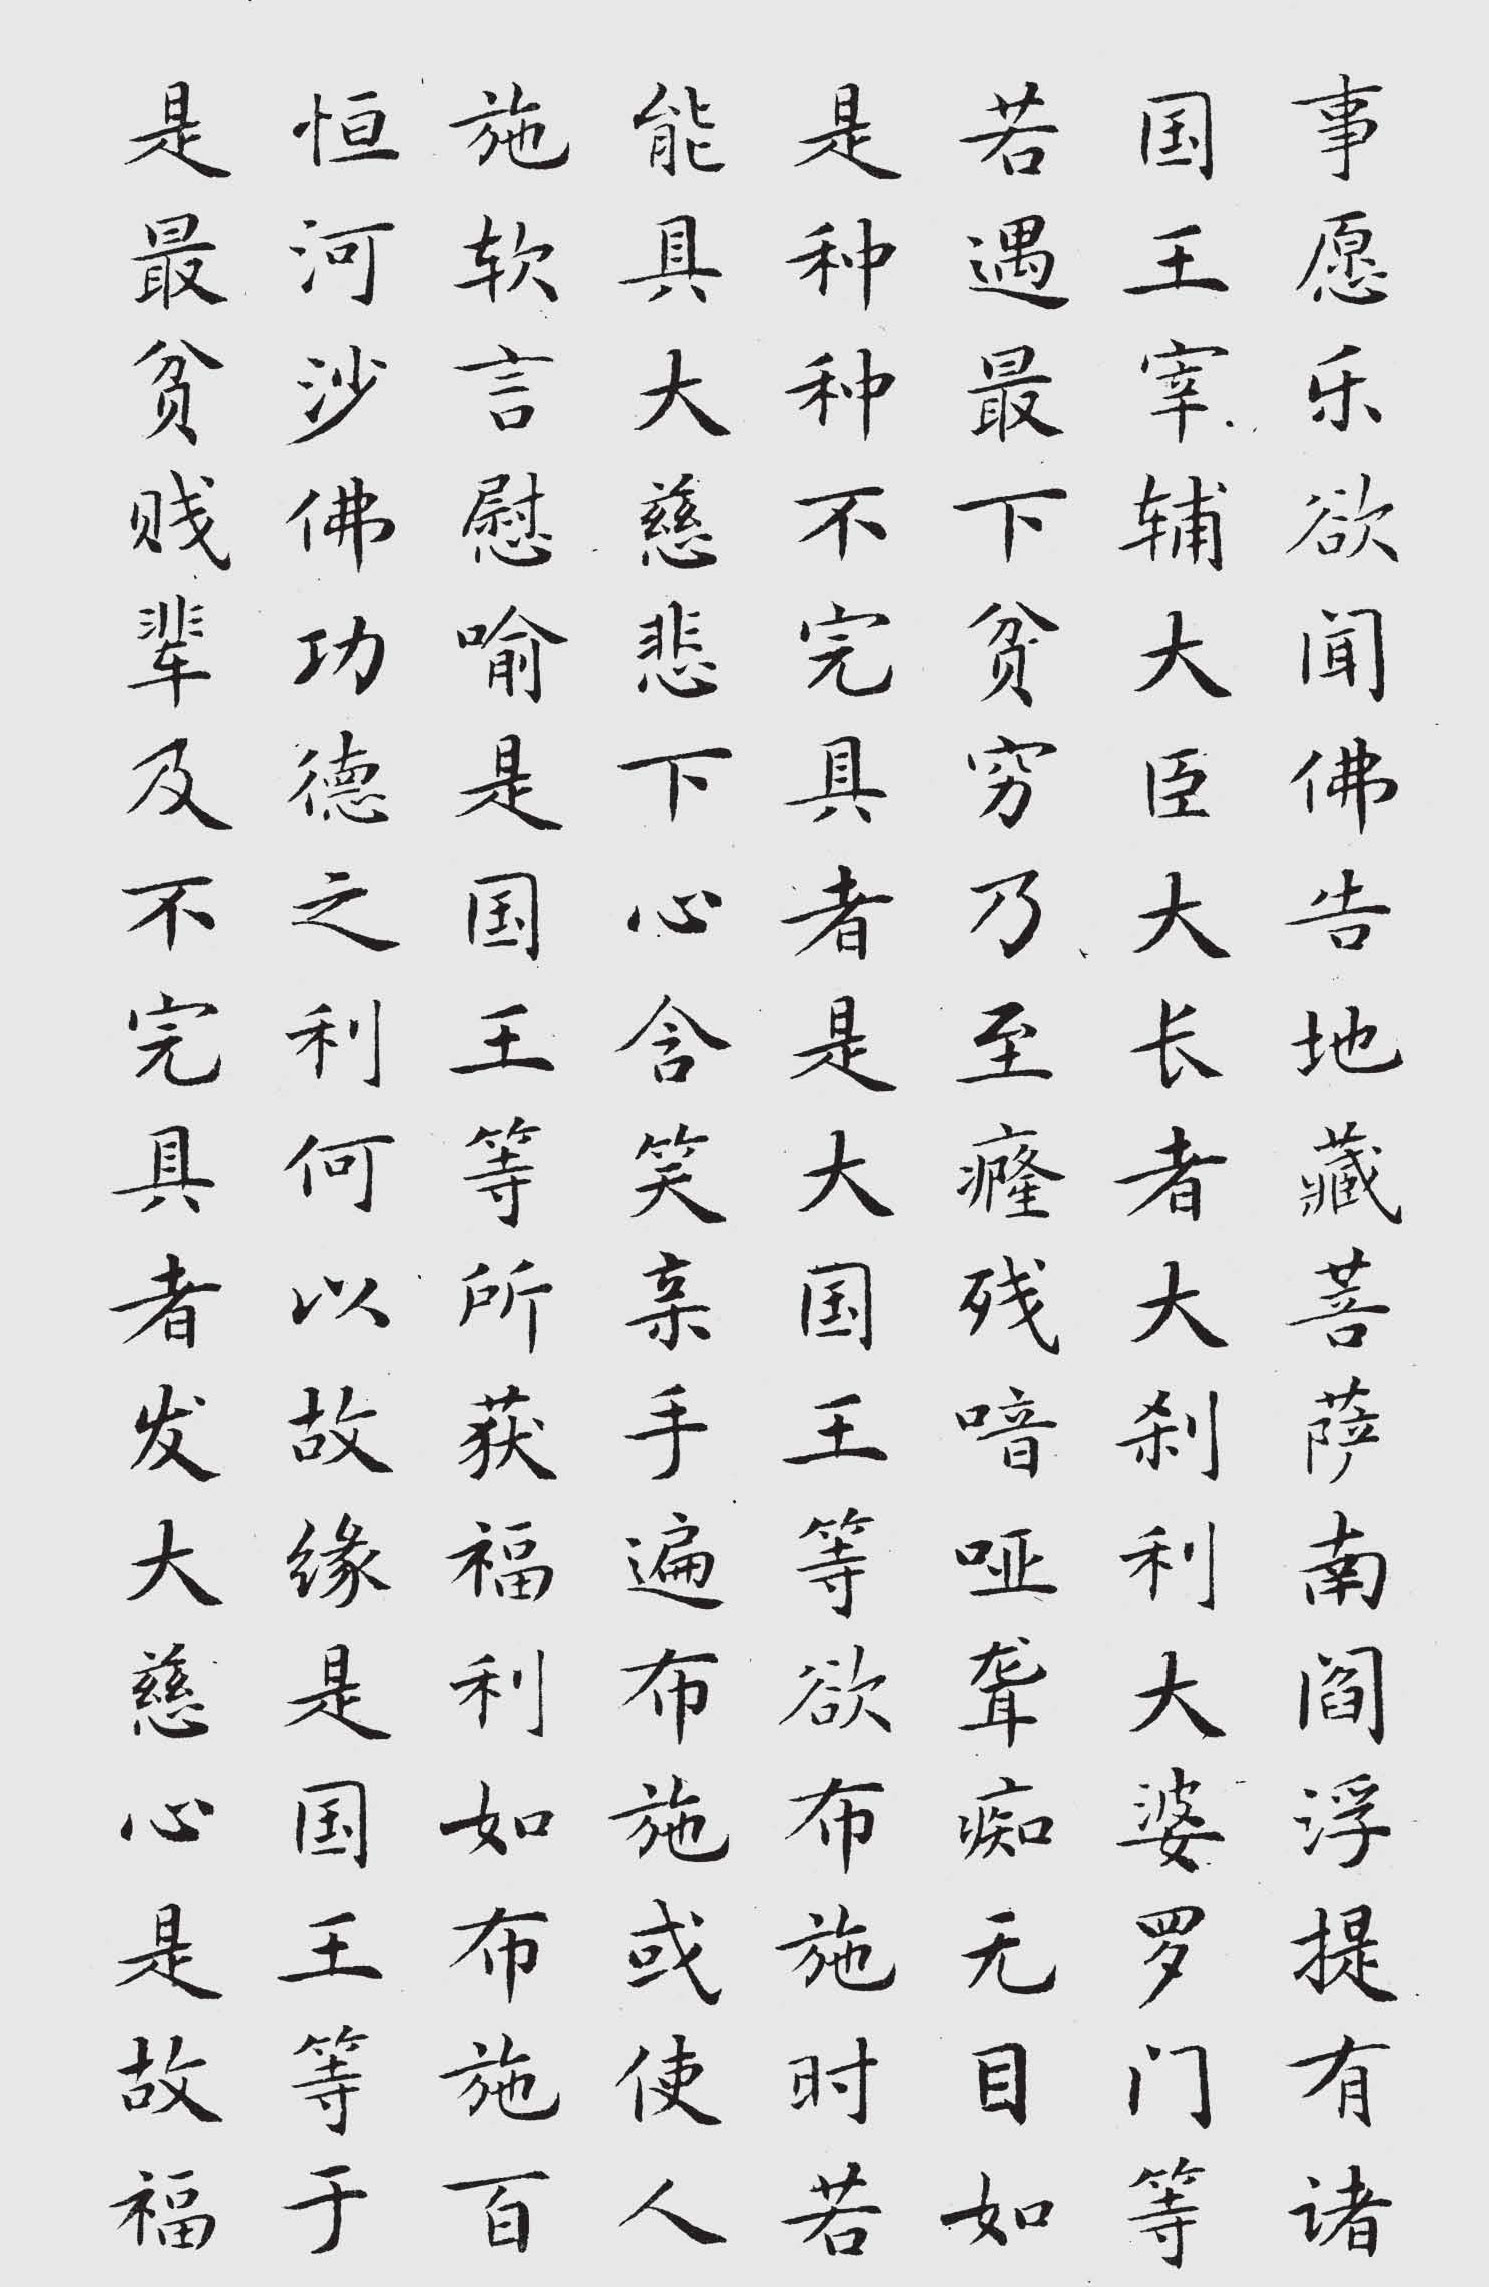 事愿乐欲闻佛告地藏菩萨南阎浮提有诸
国王宰辅大臣大长者大刹利大婆罗门等
若遇最下贫穷乃至癃残喑哑聋痴无目如
是种种不完具者是大国王等欲布施时若
能具大慈悲下心含笑亲手遍布施或使人
施软言慰喻是国王等所获福利如布施百
恒河沙佛功德之利何以故缘是国王等于
是最贫贱辈及不完具者发大慈心是故福